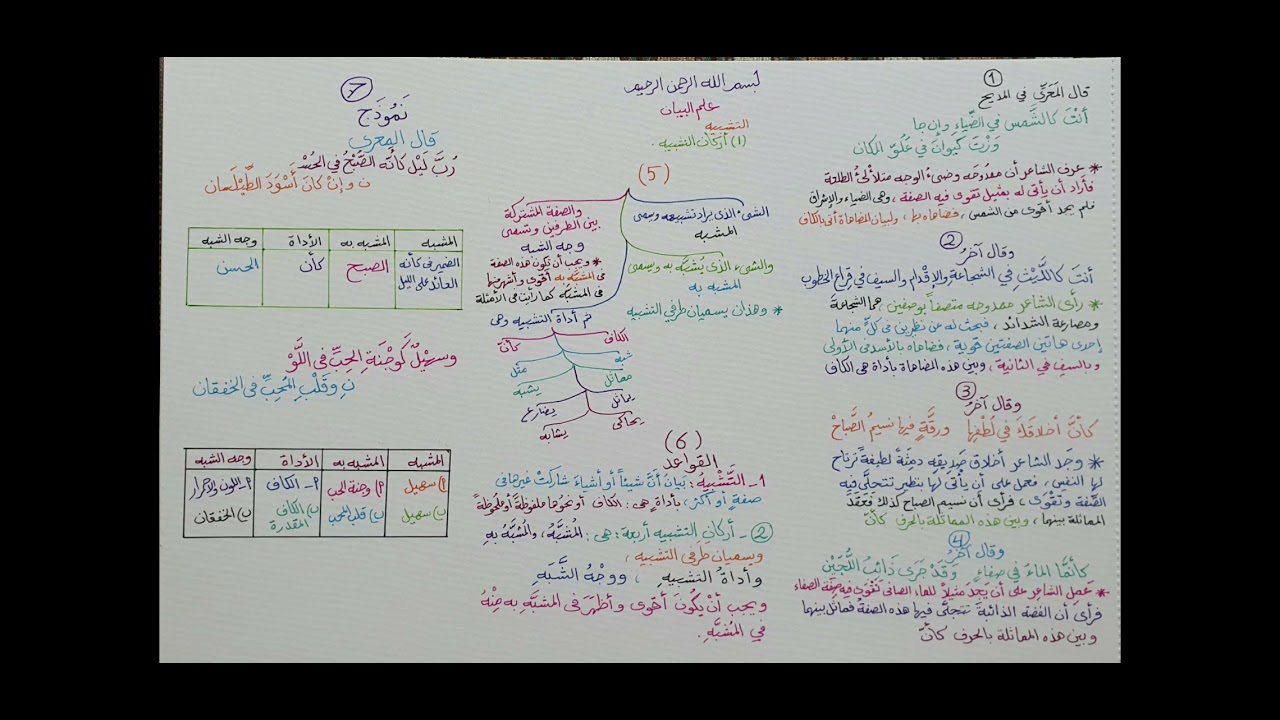 بسم الله الرحمن الرحيم
علم البيان
التشبيه
(١) أركان التشبيه.
①
قال المَعَرِّي في المديح
أنْتَ كالشَّمس في الضِّياءِ وإن جا
وَزْتَ كَيوانَ في عُلُوِّ المكان
* عرف الشاعر أن ممدوحه وضيء الوجه متلألئ الطلعة
فأراد أن يأتي له بمثيل تقوى فيه الصفة، وهي الضياء والإشراق
فلم يجد أقوى من الشمس، فضاهاه بها، ولبيان المضاهاة أتى بالكاف
②
وقال آخرُ
أنتَ كاللَّيْثِ في الشجاعةِ والإقدام والسيف في قِراعِ الخطوب
* رأى الشاعر ممدوحه متصفاً بوصفين، هما الشجاعة
ومصارعة الشدائد، فبحث له عن نظيرين في كلٍّ منهما
إحدى هاتين الصفتين قوية، فضاهاه بالأسد في الأولى
وبالسيف في الثانية، وبين هذه المضاهاة بأداة هي الكاف
③
وقال آخرُ
كأنَّ أخلاقَكَ في لُطْفِها ورِقَّةٍ فيها نسيمُ الصَّباحْ
* وجد الشاعر أخلاق صديقه دمِثةً لطيفةً ترتاح
لها النفس، فعمل على أن يأتي لها بنظير تتجلى فيه
الصِّفة وتقوى، فرأى أن نسيم الصباح كذلك فعَقَدَ
المماثلة بينهما، وبين هذه المماثلة بالحرف كأنّ
④
وقال آخرُ
كأنَّما الماءُ في صفاءٍ وَقَدْ جَرَى ذائبُ اللُّجَيْن
* عَمِل الشاعر على أن يَجِدَ مثيلاً للماء الصافي تَقْوَى فيه صِفَة الصفاء
فرأى أن الفضة الذائبة تتجلَّى فيها هذه الصفةُ فماثل بينهما
وبين هذه المماثلة بالحرف كأنّ
(5)
الشيءُ الذي يراد تشبيهه ويسمى
المشبه
والشيءُ الذي يُشَبَّه به ويسمى
المشبه به
* وهذان يسميان طرفي التشبيه
والصفة المشتركة
بين الطرفين وتسمى
وجه الشبه
* ويجب أن تكون هذه الصفة
في المشبَّه به أقوى وأشهر منها
في المشبَّه كما رأيت في الأمثلة
ثم أداة التشبيه وهي
الكاف كأنّ
شبه مثل
مماثل يشبه
يماثل يضارع
يحاكي يشابه
(6)
القواعد
1- التَّشْبِيهُ: بَيانُ أنَّ شيئاً أو أشياءَ شاركتْ غيرها في
صفةٍ أو أكثرَ، بأداةٍ هي: الكاف أو نحوُها ملفوظةً أو ملحُوظةً
②- أركانِ التشبيه أربعةٌ: هي: المُشَبَّهُ، والمُشَبَّهُ بهِ
ويسميان طرفي التشبيه،
وأداةُ التشبيهِ، ووجْهُ الشَّبَهِ
ويجب أنْ يكُونَ أقوى وأظهرَ في المشبَّهِ به مِنْهُ
في المُشَبَّهِ.
7
نَمُوذَج
قال المعري
رُبَّ لَيْلٍ كأنَّه الصُّبْحُ في الحُسْـ
نِ وإنْ كانَ أسْوَدَ الطَّيْلَسان
المشبه | المشبه به | الأداة | وجه الشبه
الضمير في كأنه العائد على الليل | الصبح | كأن | الحسن
وسهيْلٌ كَوَجْنَةِ الحِبِّ في اللَّوْ
نِ وقَلْبِ المُحِبِّ في الخفقان
المشبه | المشبه به | الأداة | وجه الشبه
أ) سهيل | أ) وجنة الحب | أ- الكاف | أ- اللون والاحمرار
ب) سهيل | ب) قلب المحب | ب) الكاف المقدرة | ب) الخفقان